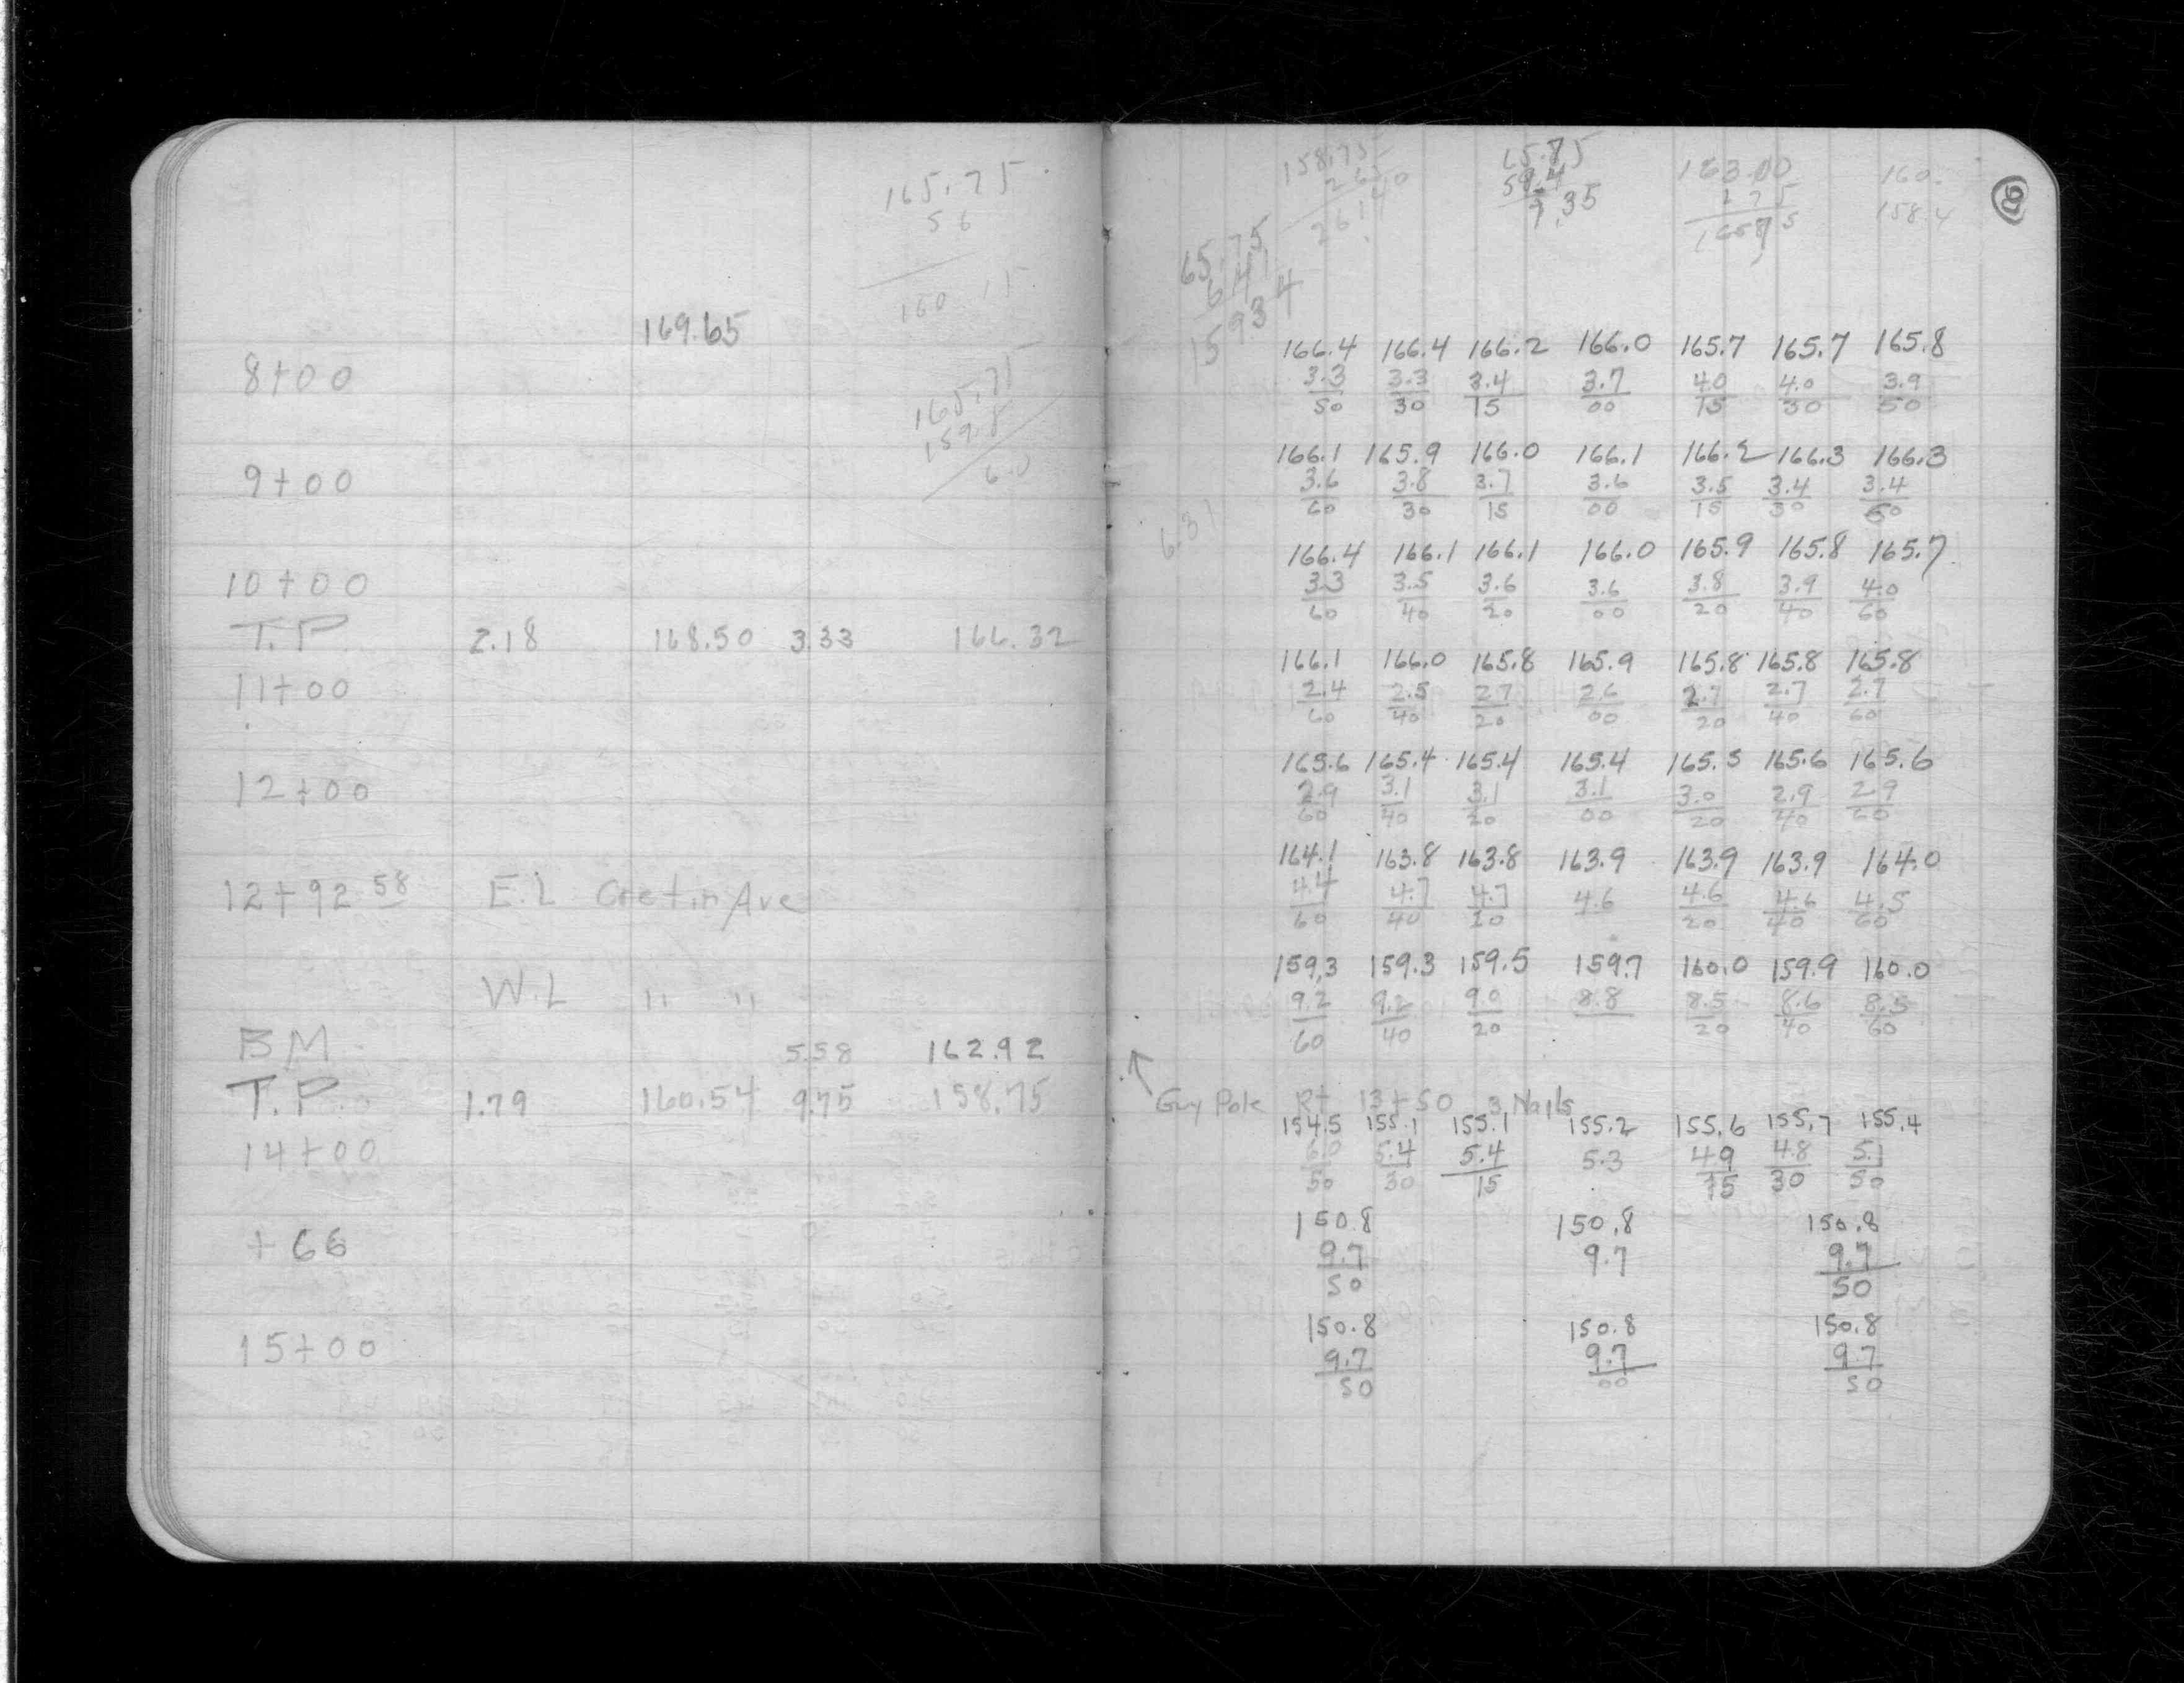 165.75
56
160.15
169.65
8+00
165.75
159.8
6.0
9+00
10+00
T.P. 2.18 168.50 3.33 166.32
11+00
12+00
12+92.58 E.L Cretin Ave
W.L " "
BM 5.58 162.92
T.P. 1.79 160.54 9.75 158.75
14+00
+66
15+00
158.75
163.00
2.75
160.
158.4
65.75
6.41
159.34
6.31
166.4 166.4 166.2 166.0 165.7 165.7 165.8
3.3 3.3 3.4 3.7 4.0 4.0 3.9
50 30 15 00 15 30 50
166.1 165.9 166.0 166.1 166.2 166.3 166.3
3.6 3.8 3.7 3.6 3.5 3.4 3.4
60 30 15 00 15 30 60
166.4 166.1 166.1 166.0 165.9 165.8 165.7
3.3 3.5 3.6 3.6 3.8 3.9 4.0
60 40 20 00 20 40 60
166.1 166.0 165.8 165.9 165.8 165.8 165.8
2.4 2.5 2.7 2.6 2.7 2.7 2.7
60 40 20 00 20 40 60
165.6 165.4 165.4 165.4 165.5 165.6 165.6
2.9 3.1 3.1 3.1 3.0 2.9 2.9
60 40 20 00 20 40 60
164.1 163.8 163.8 163.9 163.9 163.9 164.0
4.4 4.7 4.7 4.6 4.6 4.6 4.5
60 40 20 20 40 60
159.3 159.3 159.5 159.7 160.0 159.9 160.0
9.2 9.2 9.0 8.8 8.5 8.6 8.5
60 40 20 20 40 60
Guy Pole Rt 13+50 3 Nails
154.5 155.1 155.1 155.2 155.6 155.7 155.4
6.0 5.4 5.4 5.3 4.9 4.8 5.1
50 30 15 15 30 50
150.8 150.8 150.8
9.7 9.7 9.7
50 50
150.8 150.8 150.8
9.7 9.7 9.7
50 00 50